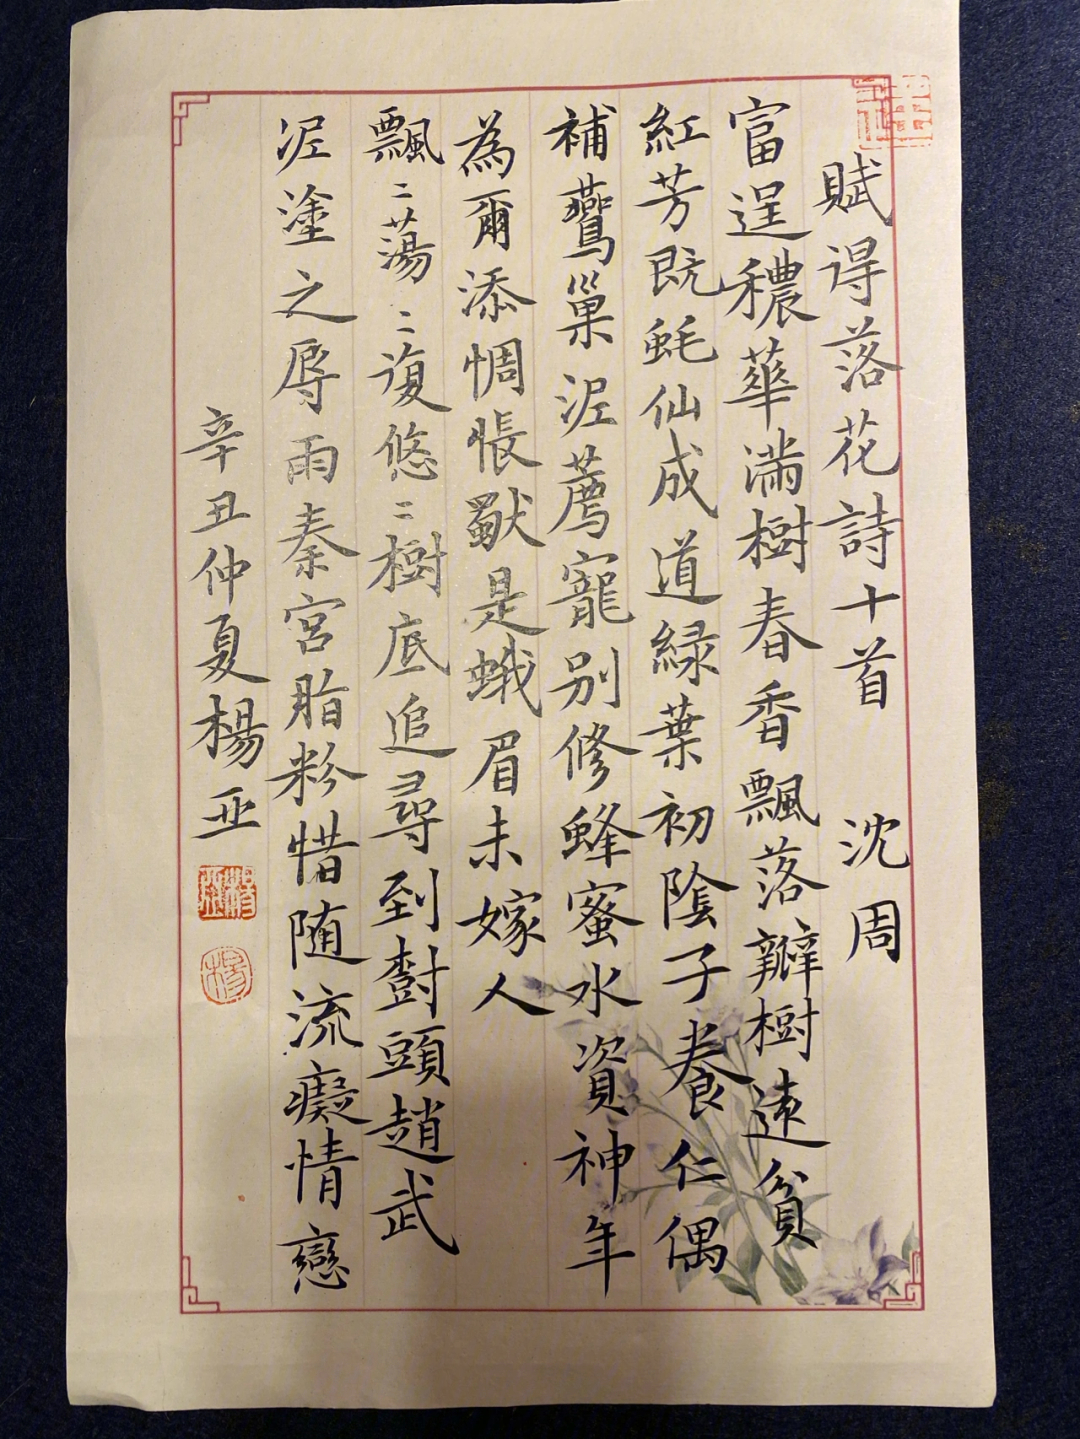 賦得落花詩十首 沈周
富逞穠華滿樹春香飄落瓣樹遠貧
紅芳既蚝仙成道緑葉初陰子養仁偶
補鷰巢泥薦寵别修蜂蜜水資神年
為爾添惆悵獣是蛾眉未嫁人
飄二蕩二復悠二樹底追尋到樹頭趙武
泥塗之辱雨秦宮脂粉惜随流癡情戀
辛丑仲夏楊亚